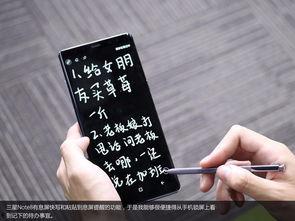 1、给女朋
友买草莓
一斤
2、老板娘打
电话问老板
去哪，还
说在加班
三星Note8有息屏快写和粘贴到息屏提醒的功能，于是我能够很便捷得从手机锁屏上看
到记下的待办事宜。